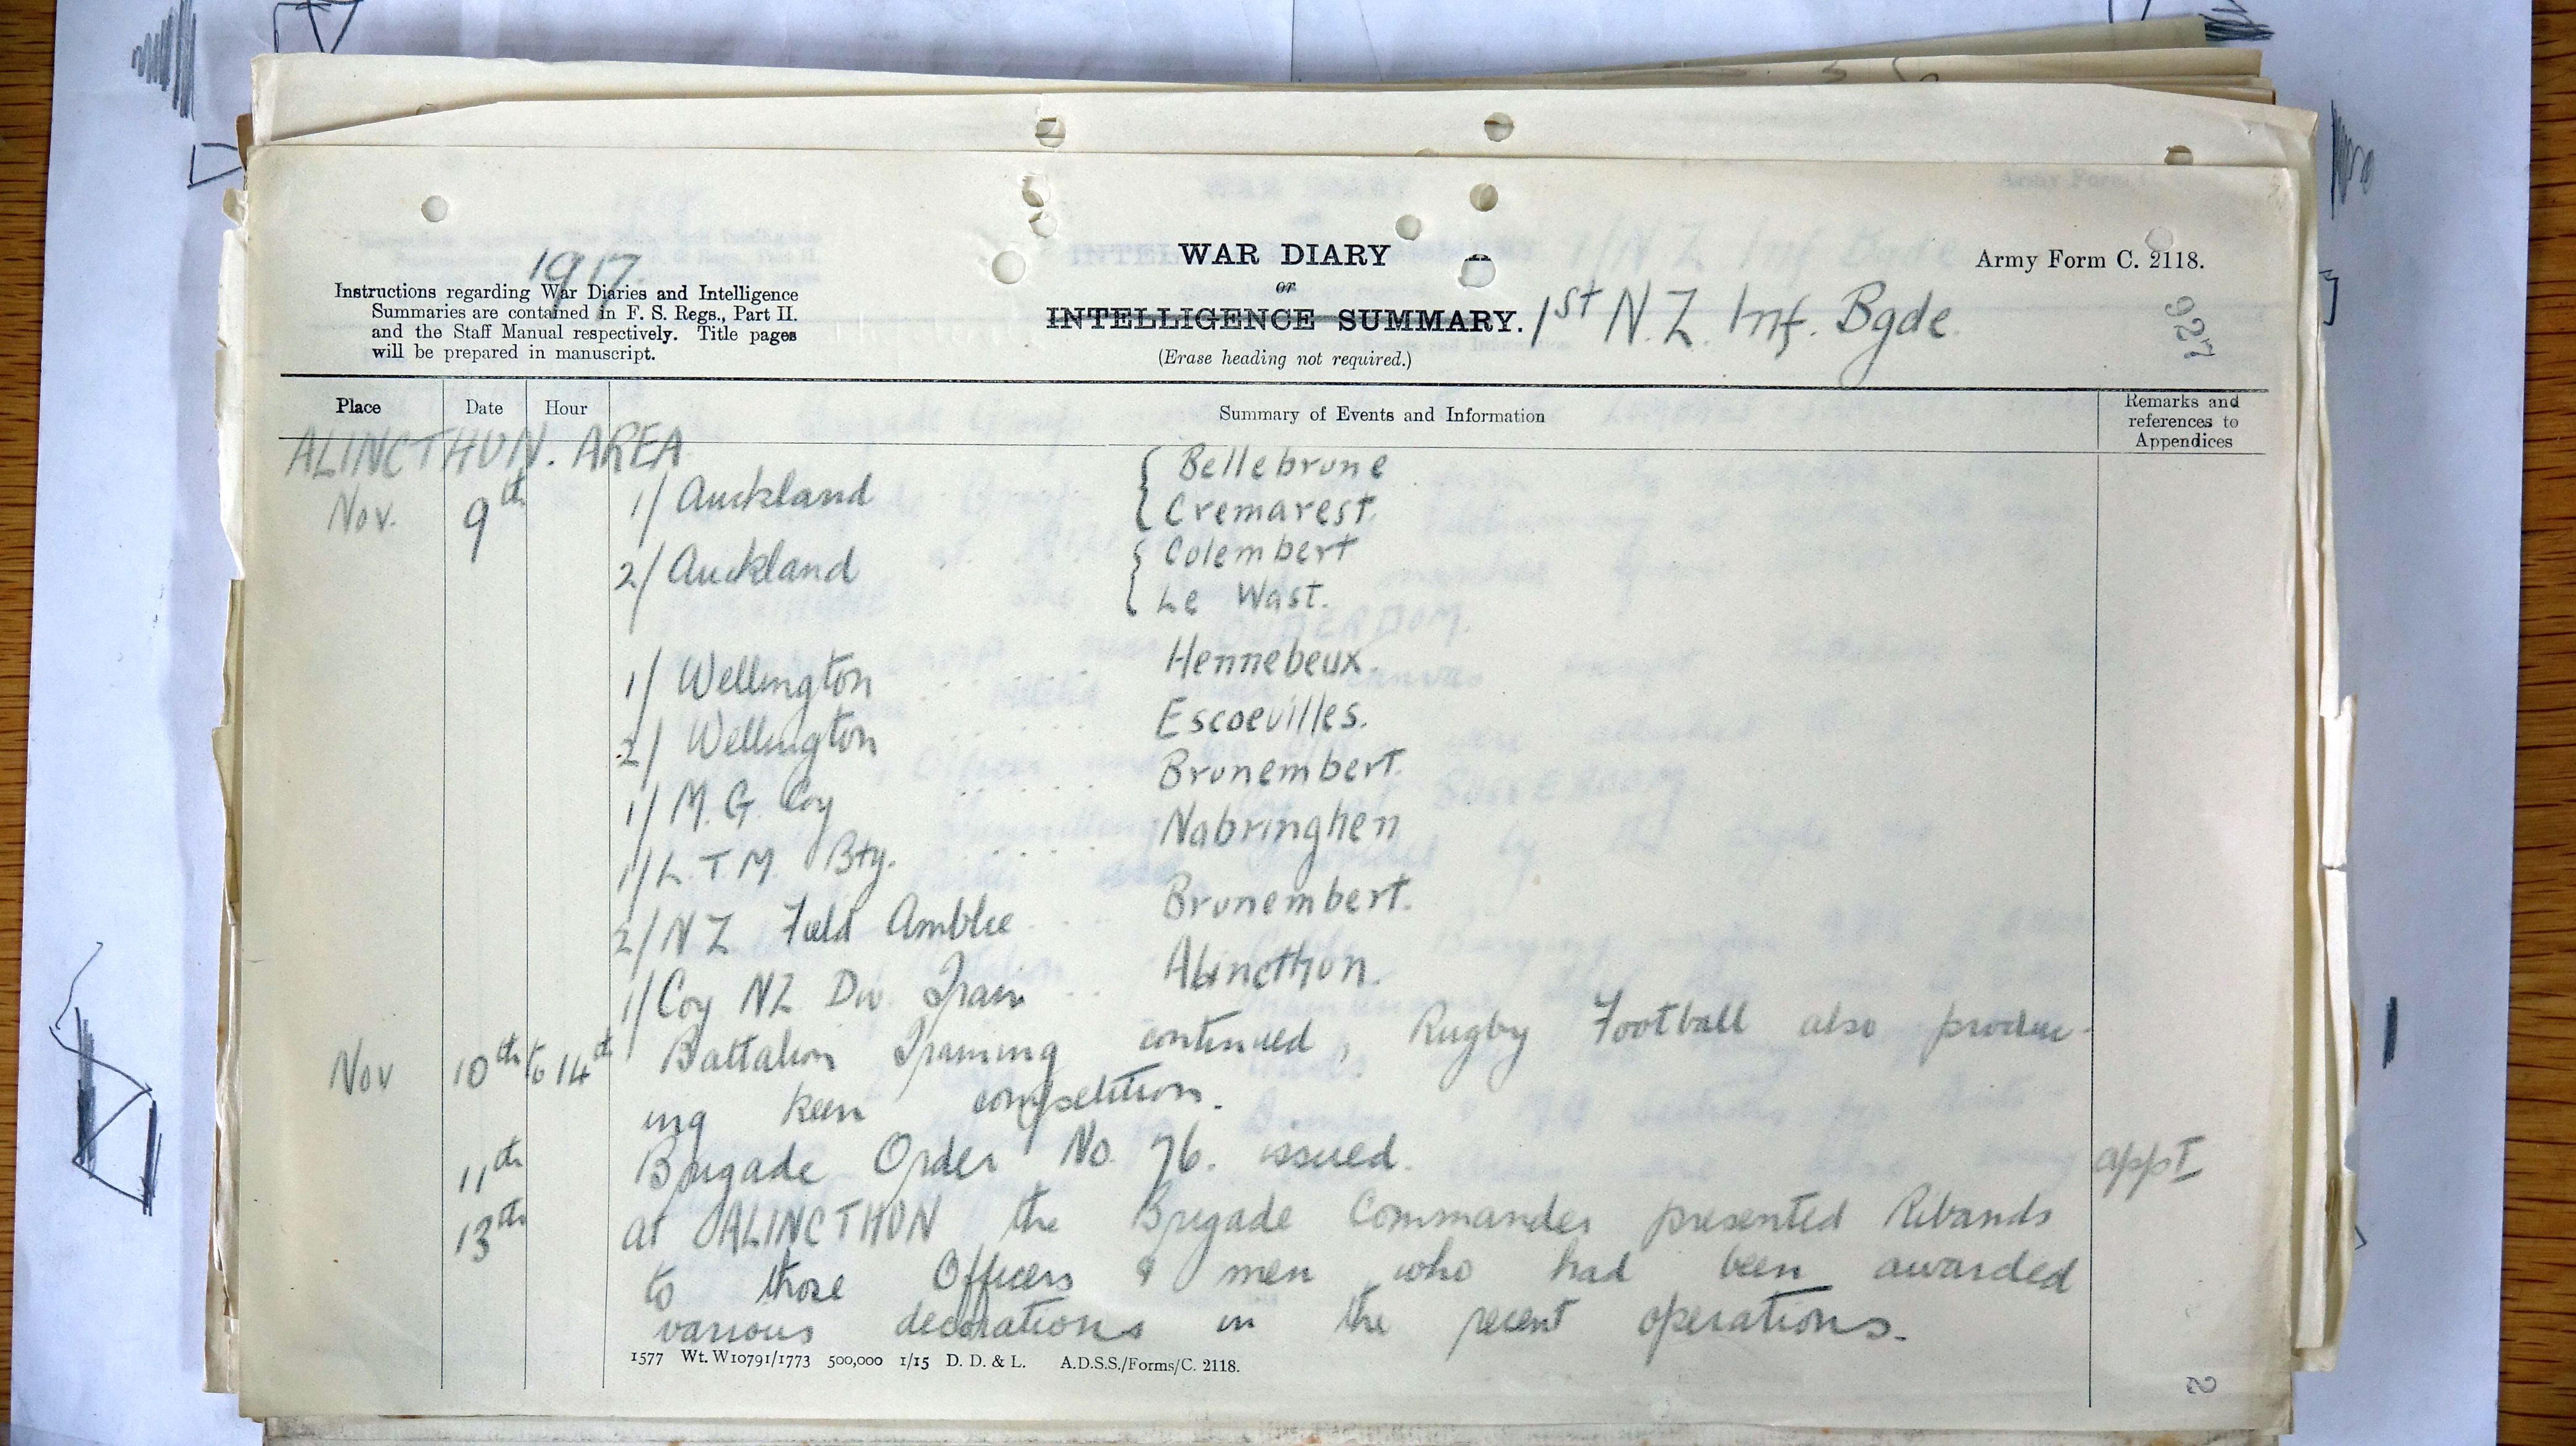 1917.
WAR DIARY
Army Form C. 2118.
or
Instructions regarding War Diaries and Intelligence
Summaries are contained in F. S. Regs., Part II.
and the Staff Manual respectively. Title pages
will be prepared in manuscript.
INTELLIGENCE SUMMARY. 1st N.Z. Inf. Bgde.
(Erase heading not required.)
927
Place Date Hour Summary of Events and Information Remarks and references to Appendices
ALINCTHUN. AREA
Nov. 9th 1/ Auckland { Bellebrune
Cremarest.
2/ Auckland { Colembert
Le Wast.
1/ Wellington . . . . . Hennebeux.
2/ Wellington . . . . . Escoeuilles.
1/ M. G. Coy . . . . . Brunembert.
1/ L. T. M. Bty. . . . . Nabringhen
2/ N Z Field Amblce . . . Brunembert.
1/ Coy NZ Div. Train . . Alincthon.
Nov 10th to 14th Battalion Training continued, Rugby Football also produc-
ing keen competition.
11th Brigade Order No. 76. issued. app I
13th At ALINCTHUN the Brigade Commander presented Ribands
to those Officers & men who had been awarded
various decorations in the recent operations.
1577 Wt. W10791/1773 500,000 1/15 D. D. & L. A.D.S.S./Forms/C. 2118.
2